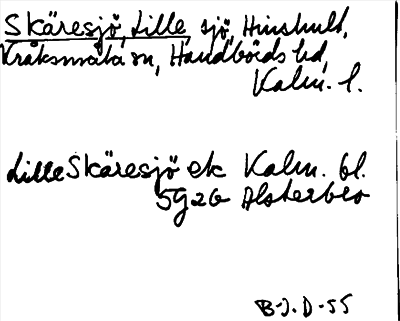 Skäresjö, Lille, sjö, Hinshult,
Kråksmåla sn, Handbörds hd,
Kalm. l.
Lille Skäresjö ek Kalm. bl.
5G2G Alsterbro
B-J.D-55